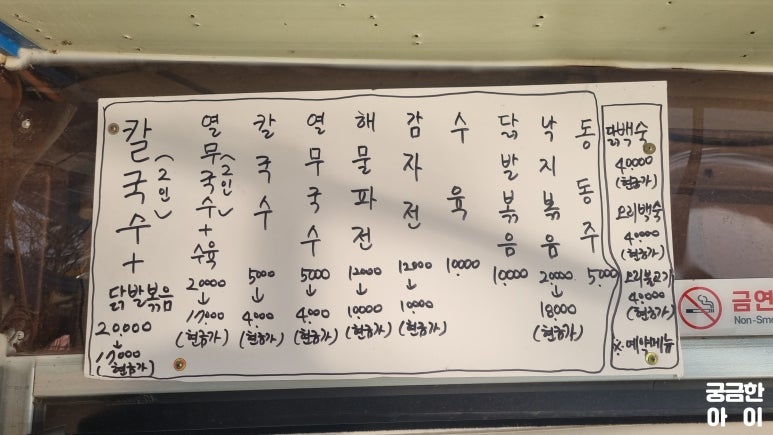 칼국수 (2인) +
닭발볶음
20,000
↓
17,000
(현금가)
열무국수 (2인) +
수육
20000
↓
17,000
(현금가)
칼국수
5000
↓
4,000
(현금가)
열무국수
5000
↓
4,000
(현금가)
해물파전
12000
↓
10000
(현금가)
감자전
12000
↓
10000
(현금가)
수육
10000
닭발볶음
10,000
낙지볶음
20000
↓
18000
(현금가)
동동주
5,000
닭백숙
40000
(현금가)
오리백숙
40000
(현금가)
오리불고기
40000
(현금가)
※예약메뉴
금연
Non-Smo
궁금한
아이